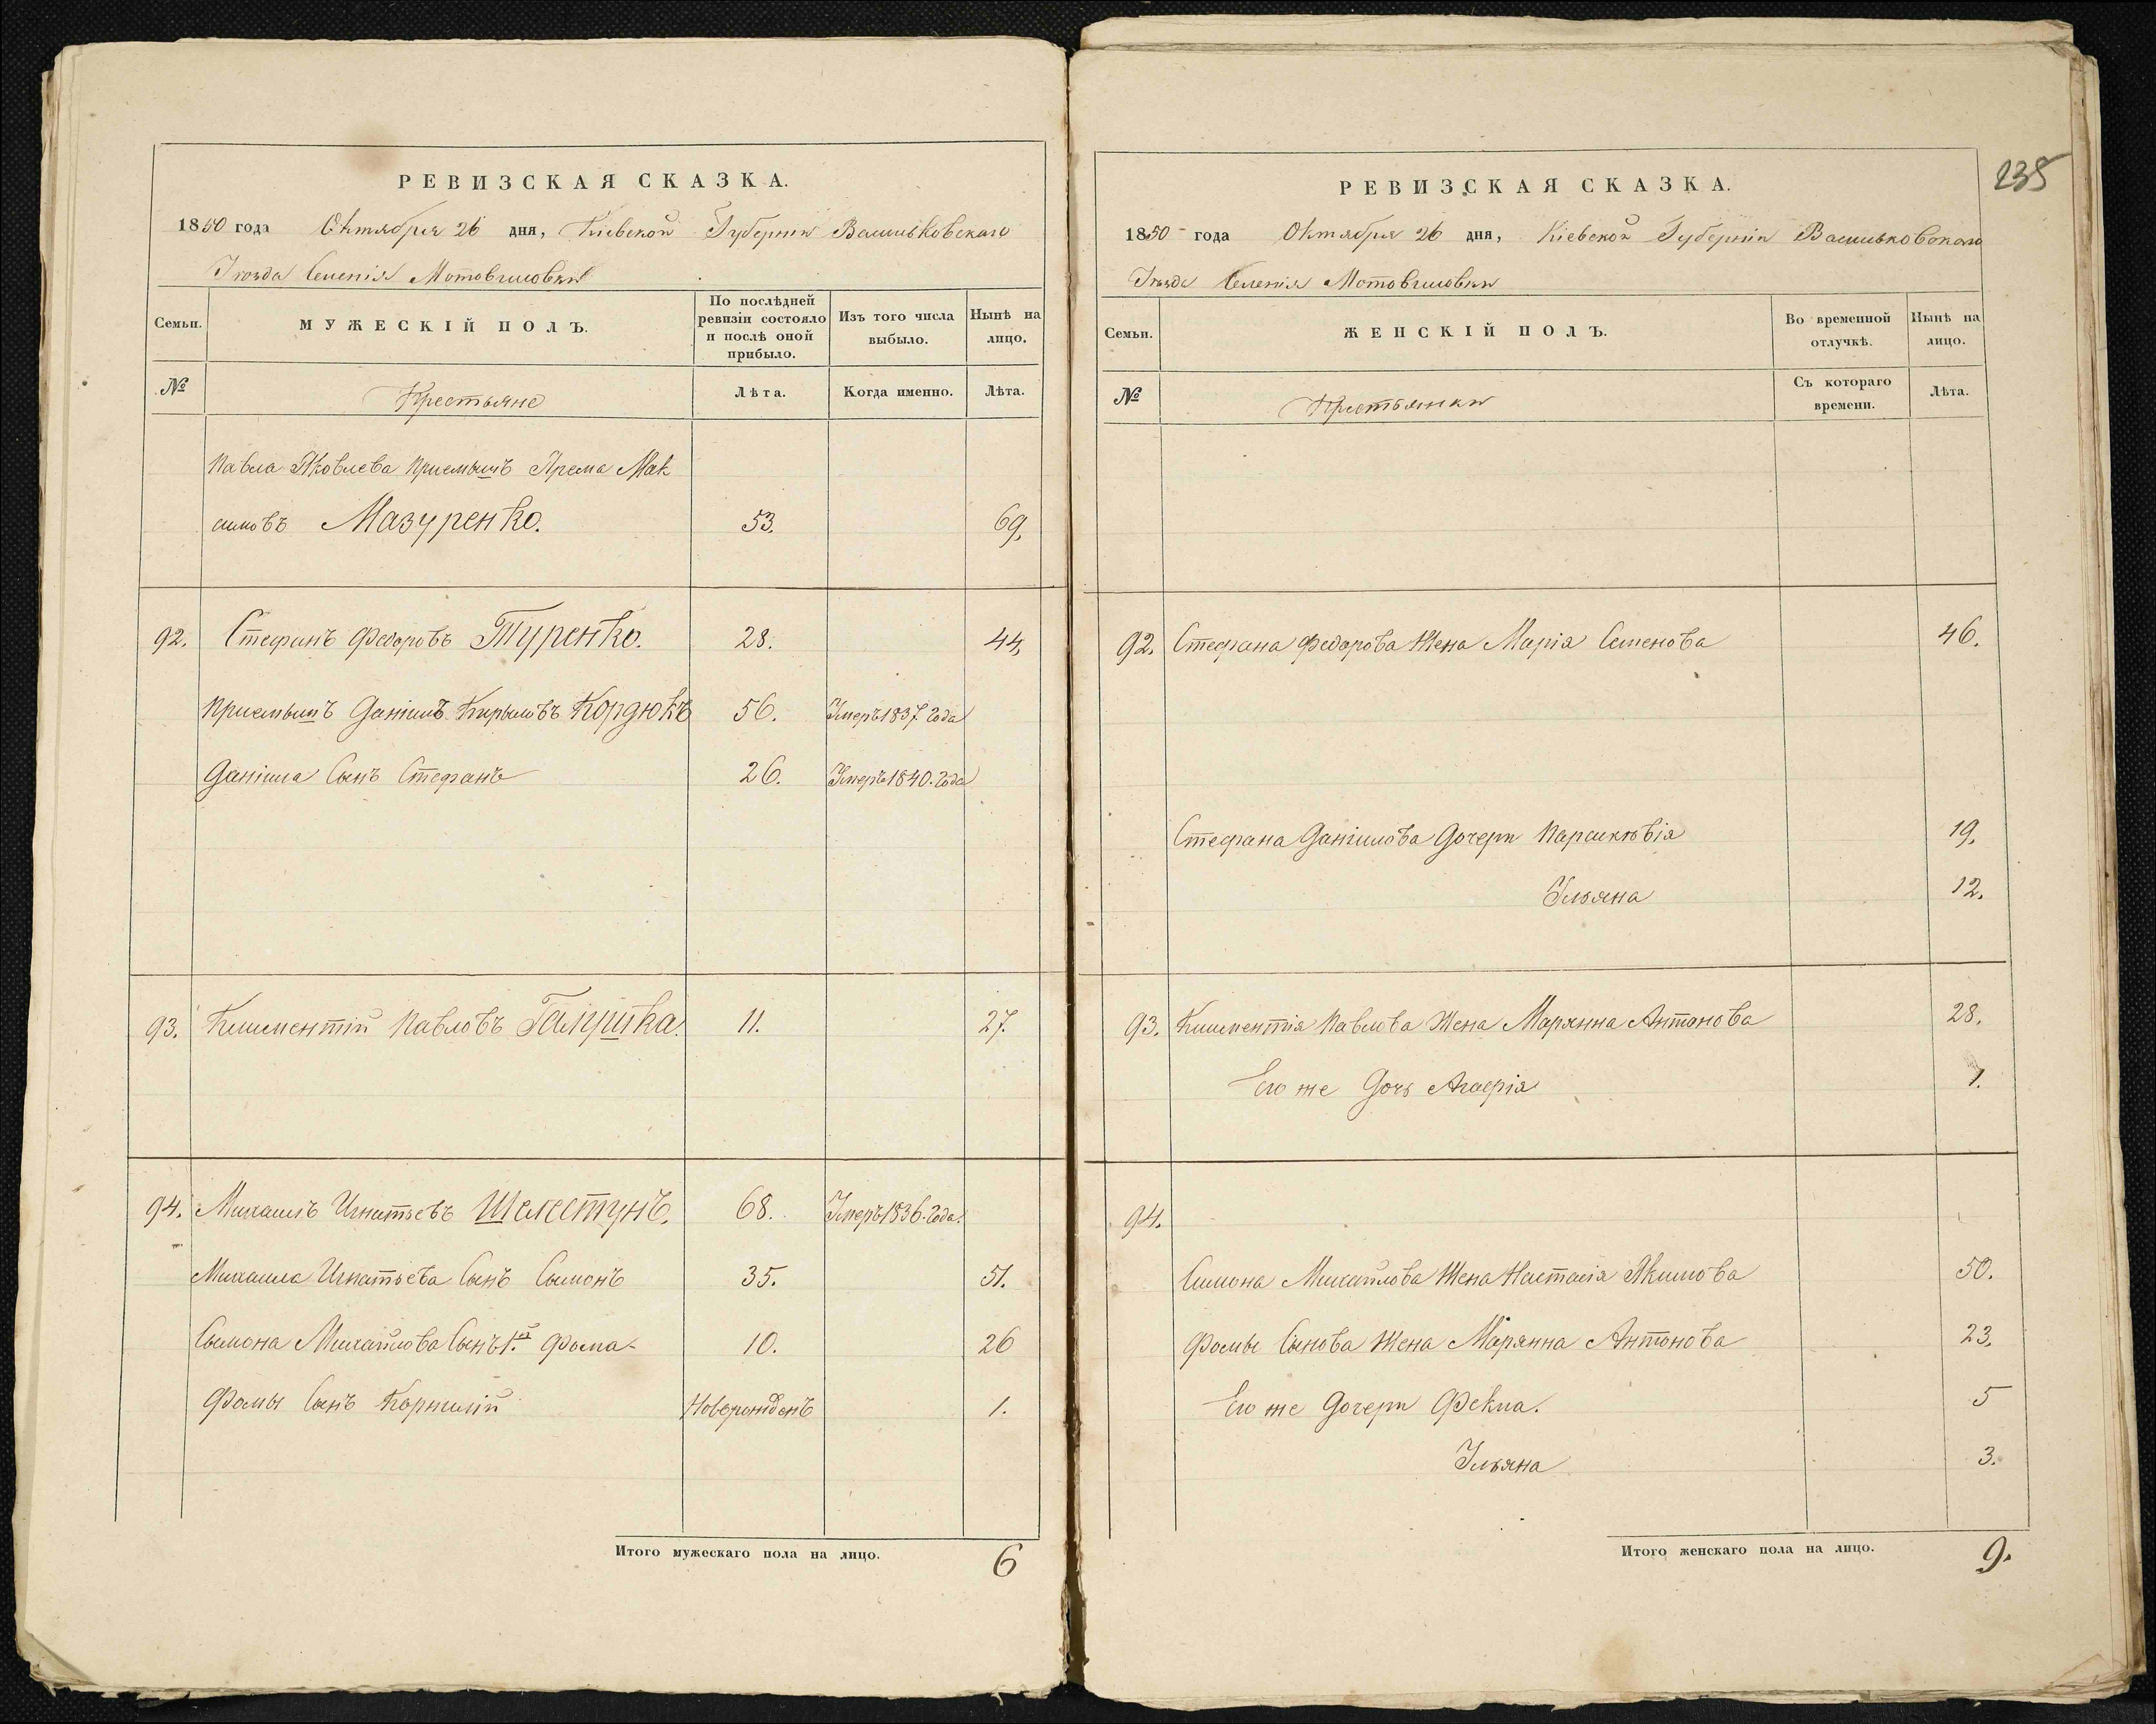 РЕВИЗСКАЯ СКАЗКА.
1850 года Октября 26 дня, Кіевской Губерніи Васильковскаго
Уѣзда Селенія Мотовиловки
Семьи.
МУЖЕСКІЙ ПОЛЪ.
По послѣдней ревизіи состояло и послѣ оной прибыло.
Изъ того числа выбыло.
Нынѣ на лицо.
№
Крестьяне
Лѣта.
Когда именно.
Лѣта.
Павла Яковлева приемышъ Ярема Мак
симовъ Мазуренко. 53. 69.
92. Стефанъ Федоровъ Туренко. 28. 44.
Приемышъ Даніилъ Кирыловъ Кордюкъ 56. Умеръ 1837 Года
Даніила Сынъ Стефанъ 26. Умеръ 1840. Года
93. Климентій Павловъ Галушка. 11. 27.
94. Михаилъ Игнатьевъ Шелестунъ. 68. Умеръ 1836. Года.
Михаила Игнатьева Сынъ Сымонъ 35. 51.
Сымона Михайлова Сынъ 1.й Фома 10. 26
Фомы Сынъ Корнилій Новорожденъ 1.
Итого мужескаго пола на лицо. 6
235
РЕВИЗСКАЯ СКАЗКА.
1850 года Октября 26 дня, Кіевской Губерніи Васильковскаго
Уѣзда Селенія Мотовиловки
Семьи.
ЖЕНСКІЙ ПОЛЪ.
Во временной отлучкѣ.
Нынѣ на лицо.
№
Крестьянки
Съ котораго времени.
Лѣта.
92. Стефана Федорова Жена Марія Семенова 46.
Стефана Данилова Дочери Параскѣвія 19.
Ульяна 12.
93. Климентія Павлова Жена Марянна Антонова 28.
Его же Дочь Агафія 1.
94.
Симона Михайлова Жена Настасія Якимова 50.
Фомы Сынова Жена Марянна Антонова 23.
Его же Дочери Фекла. 5
Ульяна 3.
Итого женскаго пола на лицо. 9.